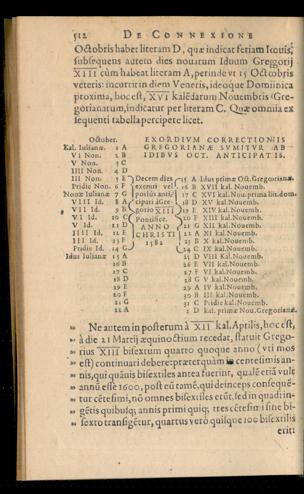 512 DE CONNEXIONE
Octobris habet literam D, quæ indicat feriam Iouis;
subsequens autem dies nouarum Iduum Gregorij
XIII cùm habeat literam A, perinde vt 15 Octobris
veteris: incurrit in diem Veneris, ideoque Dominica
proxima, hoc est, XVI kalēdarum Nouembris Gre-
gorianarum, indicatur per literam C. Quæ omnia ex
sequenti tabella percipere licet.
October.
Kal. Iulianæ. 1 A
VI Non. 2 B
V Non. 3 C
IIII Non. 4 D
III Non. 5 E
Pridie Non. 6 F
Nonæ Iulianæ 7 G
VIII Id. 8 A
VII Id. 9 B
VI Id. 10 C
V Id. 11 D
IIII Id. 12 E
III Id. 13 F
Pridie Id. 14 G
Idus Iulianæ 15 A
16 B
17 C
18 D
19 E
20 F
21 G
22 A
EXORDIVM CORRECTIONIS
GREGORIANÆ SVMITVR AB
IDIBVS OCT. ANTICIPATIS.
Decem dies
exempti
cipati à Gre-
gorio XIII
Pontifice.
ANNO
CHRISTI
1582
15 A Idus primæ Oct. Gregorianæ.
16 B XVII kal. Nouemb.
17 C XVI kal. Nou. prima lit. dom.
18 D XV kal. Nouemb.
19 E XIIII kal. Nouemb.
20 F XIII kal. Nouemb.
21 G XII kal. Nouemb.
22 A XI kal. Nouemb.
23 B X kal. Nouemb.
24 C IX kal. Nouemb.
25 D VIII kal. Nouemb.
26 E VII kal. Nouemb.
27 F VI kal. Nouemb.
28 G V kal. Nouemb.
29 A IV kal. Nouemb.
30 B III kal. Nouemb.
31 C Pridie kal. Nouemb.
1 D kal. primæ Nou. Gregorianæ.
Ne autem in posterum à XII kal. Aprilis, hoc est,
à die 21 Martij æquinoctium recedat, statuit Grego-
rius XIII bisextum quarto quoque anno (vti mos
est) continuari debere: præterquàm in centesimis an-
nis, qui quāuis bisextiles antea fuerint, qualē etiā vult
annū esse 1600, post eū tamē, qui deinceps consequē-
tur cētesimi, nō omnes bisextiles erūt, sed in quadrin-
gētis quibusq; annis primi quiq; tres cētesimi sine bi-
sexto transigētur, quartus verò quisque 100 bisextilis
erit: